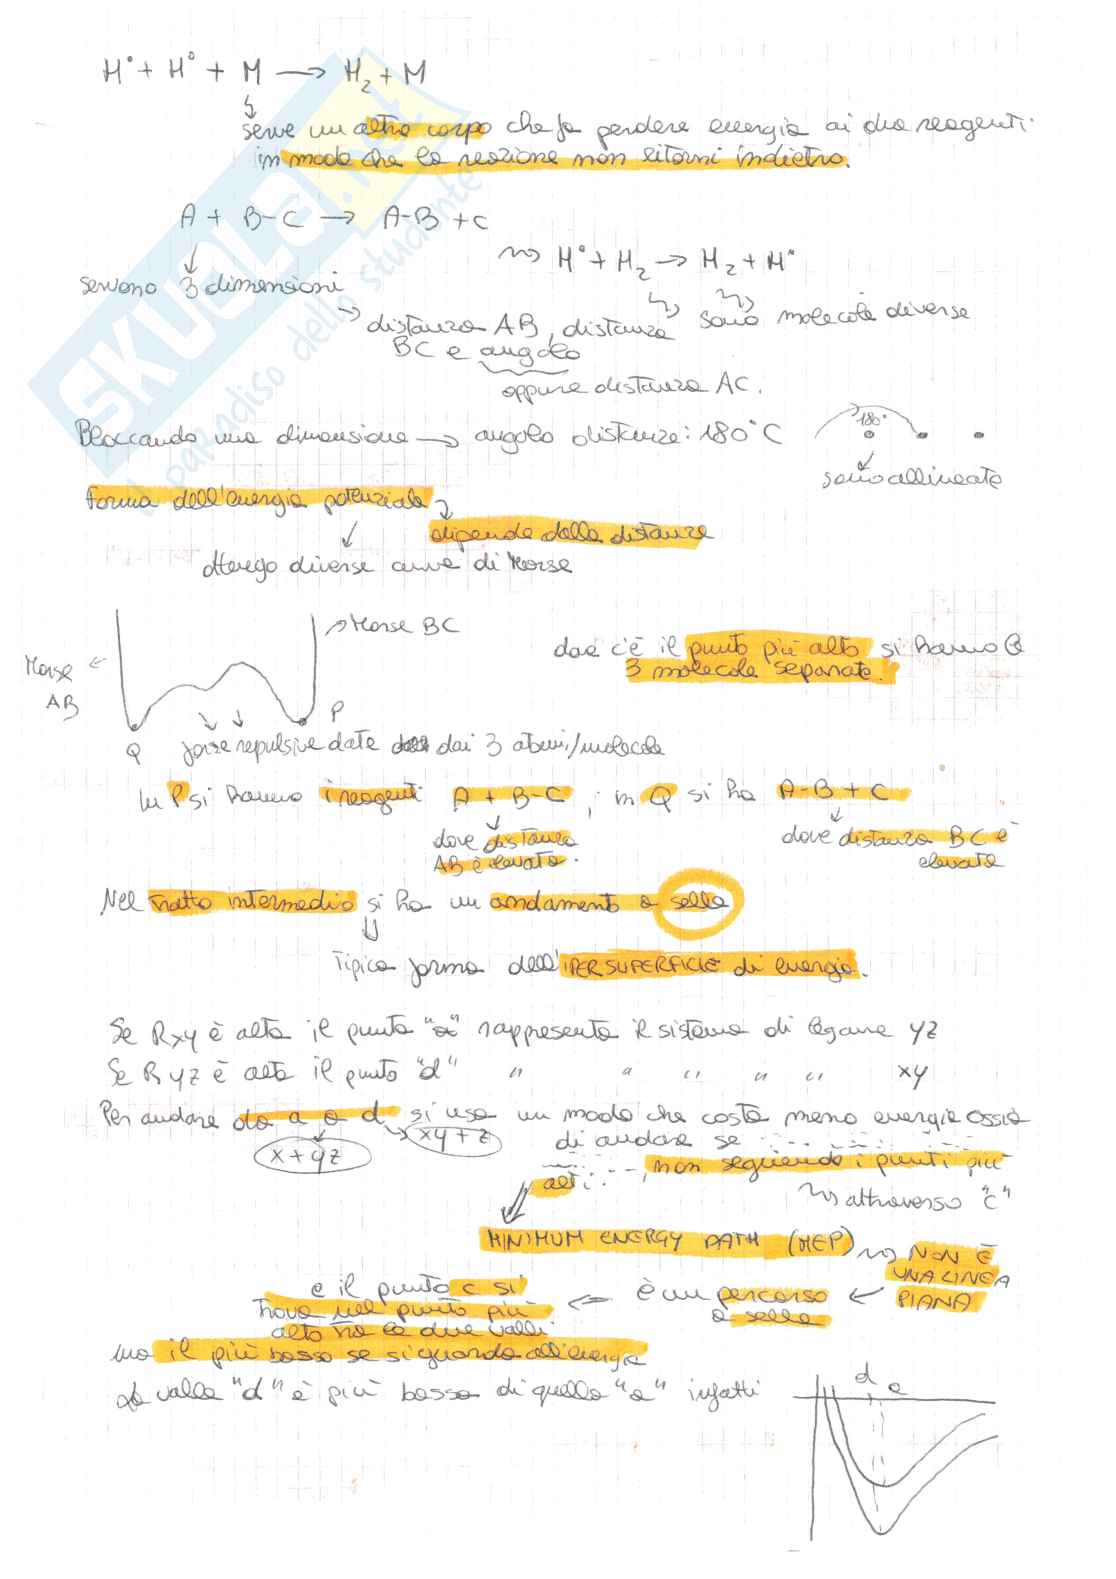 H° + H° + M → H₂ + M
serve un altro corpo che fa perdere energia ai due reagenti
in modo che la reazione non ritorni indietro.
A + B-C → A-B + C
H° + H₂ → H₂ + H°
servono 3 dimensioni
distanza AB, distanza
BC e angolo
sono molecole diverse
oppure distanza AC.
Bloccando una dimensione → angolo distanze: 180°C
180°
sono allineate
forma dell'energia potenziale
dipende dalla distanza
ottengo diverse curve di Morse
Morse BC
Morse
AB
dove c'è il punto più alto si hanno le
3 molecole separate.
Q
P
forze repulsive date dai 3 atomi/molecole
In P si hanno i reagenti A + B-C, in Q si ha A-B + C
dove distanza
AB è elevata.
dove distanza BC è
elevata
Nel tratto intermedio si ha un andamento a sella
Tipica forma dell'IPERSUPERFICIE di energia.
Se Rxy è alta il punto "a" rappresenta il sistema di legame yz
Se Ryz è alta il punto "d" " " " " " xy
Per andare da a a d si usa un modo che costa meno energia ossia
x + yz
xy + z
di andare se
non seguendo i punti più
alti
attraverso "c"
MINIMUM ENERGY PATH (MEP)
NON È
UNA LINEA
PIANA
è un percorso
a sella
e il punto c si
trova nel punto più
alto tra le due valli
ma il più basso se si guarda all'energia
La valle "d" è più bassa di quella "a" infatti
d a
SKUOLA.net
il paradiso dello studente